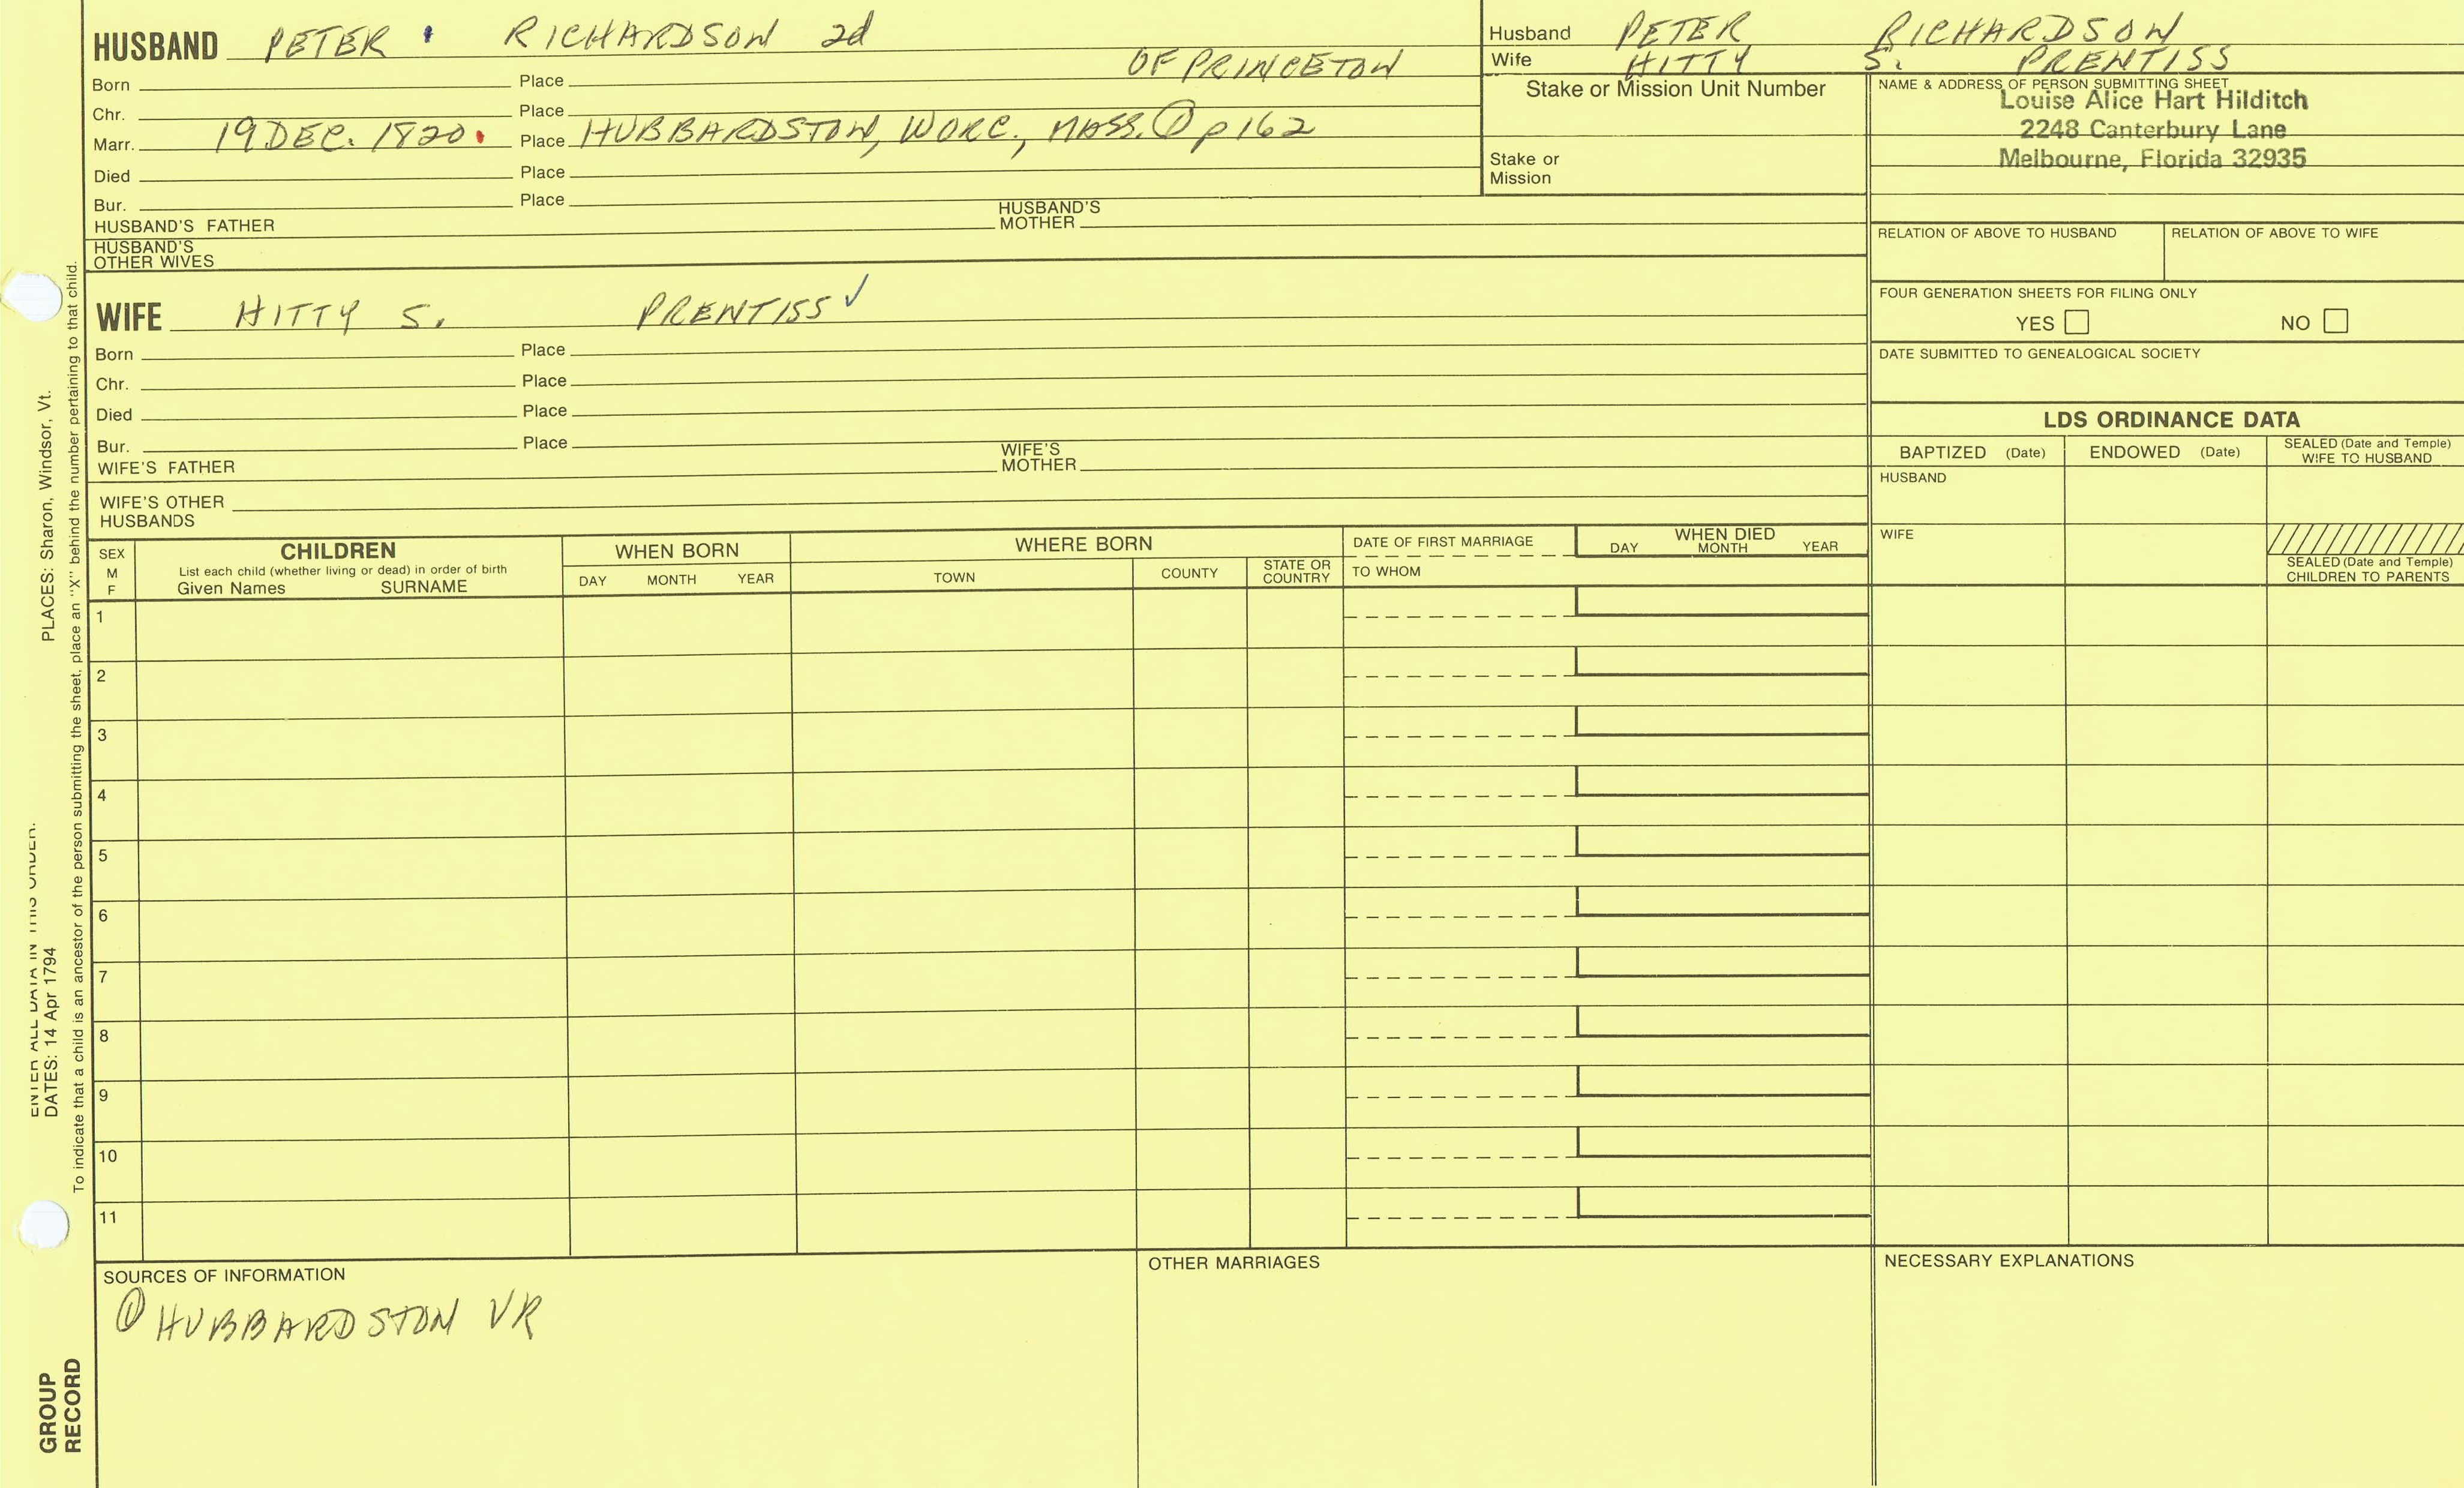 HUSBAND PETER RICHARDSON 2d
OF PRINCETON
Born Place
Chr. Place
Marr. 19 DEC. 1820. Place HUBBARDSTON, WORC., MASS. ① p 162
Died Place
Bur. Place
HUSBAND'S FATHER HUSBAND'S MOTHER
HUSBAND'S OTHER WIVES
Husband PETER RICHARDSON
Wife HITTY S. PRENTISS
Stake or Mission Unit Number
Stake or Mission
NAME & ADDRESS OF PERSON SUBMITTING SHEET
Louise Alice Hart Hilditch
2248 Canterbury Lane
Melbourne, Florida 32935
RELATION OF ABOVE TO HUSBAND RELATION OF ABOVE TO WIFE
FOUR GENERATION SHEETS FOR FILING ONLY
YES NO
DATE SUBMITTED TO GENEALOGICAL SOCIETY
WIFE HITTY S. PRENTISS ✓
Born Place
Chr. Place
Died Place
Bur. Place
WIFE'S FATHER WIFE'S MOTHER
WIFE'S OTHER HUSBANDS
LDS ORDINANCE DATA
BAPTIZED (Date) ENDOWED (Date) SEALED (Date and Temple) WIFE TO HUSBAND
HUSBAND
WIFE
SEALED (Date and Temple) CHILDREN TO PARENTS
SEX M F
CHILDREN
List each child (whether living or dead) in order of birth
Given Names SURNAME
WHEN BORN
DAY MONTH YEAR
WHERE BORN
TOWN COUNTY STATE OR COUNTRY
DATE OF FIRST MARRIAGE
TO WHOM
WHEN DIED
DAY MONTH YEAR
1
2
3
4
5
6
7
8
9
10
11
SOURCES OF INFORMATION
① HUBBARDSTON VR
OTHER MARRIAGES
NECESSARY EXPLANATIONS
ENTER ALL DATA IN THIS ORDER:
DATES: 14 Apr 1794 PLACES: Sharon, Windsor, Vt.
To indicate that a child is an ancestor of the person submitting the sheet, place an "X" behind the number pertaining to that child.
GROUP
RECORD